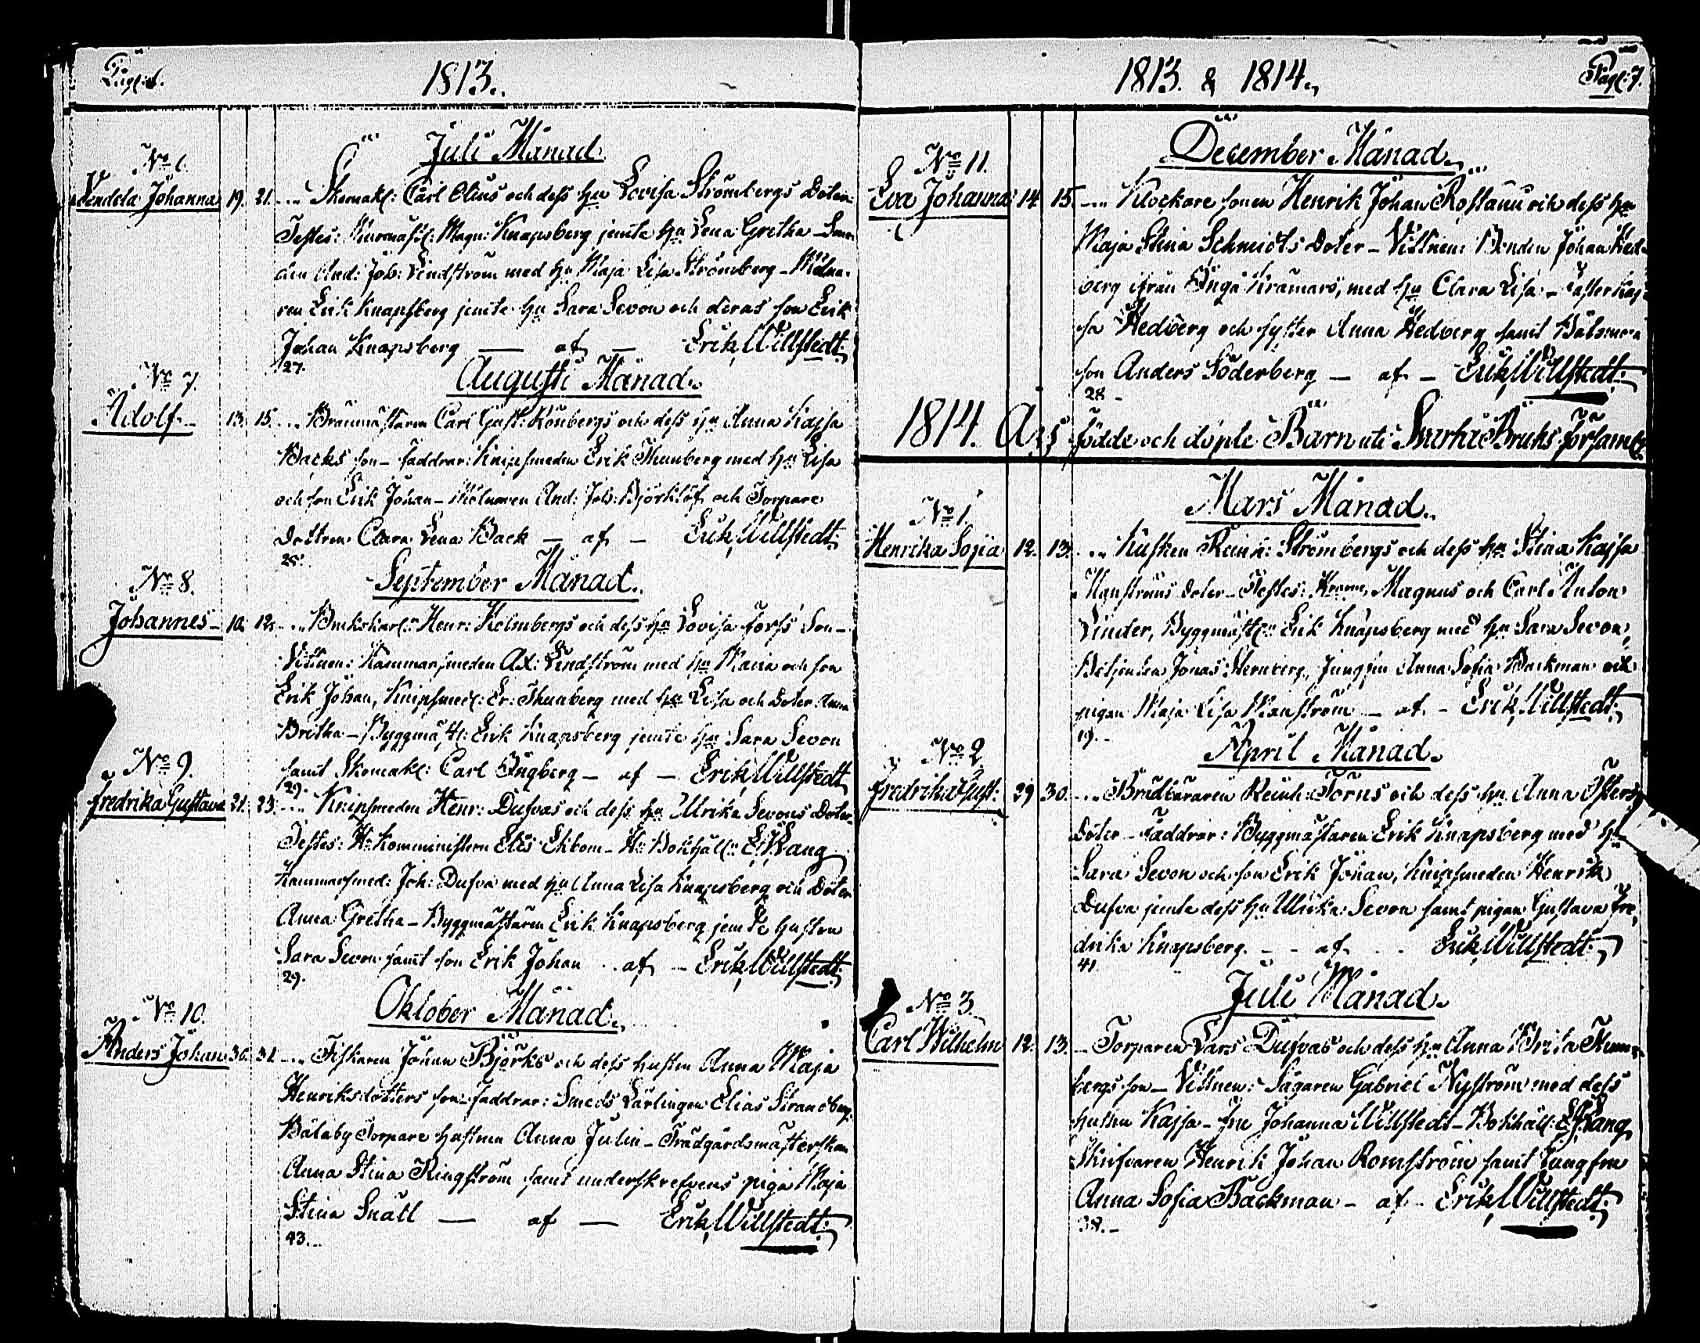 1813.
Juli Månad
No 6.
Vendela Johanna 19. 21. Skomak: Carl Olius och dess hu Lovisa Strömbergs Doter
Testes: Murmäst: Magn: Knapsberg jemte hu Lena Gretha
And: Joh: Lindström med hu Maja Lisa Strömberg - Mölna-
ren Erik Knapsberg jemte hu Sara Sevon och deras son Erik
Johan Knapsberg — af — Erik Willstedt.
27.
Augusti Månad.
No 7.
Adolf. 13. 15. Carl Gust: Rönbergs och dess hu Anna Kajsa
Backs son - Faddrar: Knipsmeden Erik Thunberg med hu Lisa
och son Erik Johan - Mölnaren And: Joh: Björklöf och Torpare
Dottren Clara Lena Back — af — Erik Willstedt.
25.
September Månad.
No 8.
Johannes 10. 12. Brukskarl: Henr: Holmbergs och dess hu Lovisa Forss Son -
Vittnen: Hammarsmeden Ad: Lindström med hu Maria och son
Erik Johan, Knipsmed: Er: Thunberg med hu Lisa och Doter Anna
Britha - Byggmäst: Erik Knapsberg jemte hu Sara Sevon
samt Skomak: Carl Öngberg — af — Erik Willstedt
29.
No 9.
Fredrika Gustava 21. 23. Knipsmeden Henr: Dufvas och dess hu Ulrika Sevons Doter
Testes: Hr Komministern Elis Ekbom - Hr Bokhåll: E: Wang
Hammarsmed: Joh: Dufva med hu Anna Lisa Knapsberg och Doter
Anna Gretha - Byggmästaren Erik Knapsberg jemte hustru
Sara Sevon samt son Erik Johan af — Erik Willstedt.
29.
Oktober Månad.
No 10.
Anders Johan 30. 31. Fiskaren Johan Björks och dess hustru Anna Maja
Henriksdotters son Faddrar: Smeds Lärlingen Elias Strandberg
Bålaby Torpare hustrun Anna Julin - Trädgårdsmästerskan
Anna Stina Ringström samt underskrefvens piga Maja
Stina Snäll — af — Erik Willstedt.
43.
1813. & 1814. Pag: 7.
December Månad.
No 11.
Eva Johanna 14. 15. Klockare sonen Henrik Johan Rossanu och dess hu
Maja Stina Schmidts Doter - Vittnen: Bonden Johan Hed-
berg ifrån Ångå Kramars, med hu Clara Lisa - Faster Kaj-
sa Hedberg och syster Anna Hedberg samt
son Anders Söderberg — af — Erik Willstedt.
28.
1814. Års födde och döpte Barn uti Bruks Församl.
Mars Månad.
No 1.
Henrika Sofia 12. 13. Kusken Reinh: Strömbergs och dess hu Stina Kajsa
Manströms Doter - Testes: Magnus och Carl Anton
Linder, Byggmäst: Erik Knapsberg med hu Sara Sevon,
Betjenten Jonas Sternberg, Jungfru Anna Sofia Backman och
pigan Maja Lisa Manström — af — Erik Willstedt.
19.
April Månad.
No 2.
Fredrika Gust: 29. 30. Brädbäraren Reinh: Törns och dess hu Anna Österns
Doter - Faddrar: Byggmästaren Erik Knapsberg med hu
Sara Sevon och son Erik Johan, Knipsmeden Henrik
Dufva jemte dess hu Ulrika Sevon samt pigan Gustava Fre-
drika Knapsberg. — af Erik Willstedt.
41.
Juli Månad.
No 3.
Carl Wilhelm 12. 13. Torparen Lars Dufvas och dess hu Anna Brita Thun-
bergs son - Vittnen: Sågaren Gabriel Nyström med dess
hustru Kajsa - Fru Johanna Willstedt - Bokhåll: E: Wang
Skrifvaren Henrik Johan Romström samt Jungfru
Anna Sofia Backman — af — Erik Willstedt.
38.